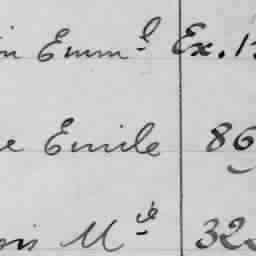 in Emm.l Ex. 1
e Emile 86
ois M.ie 32